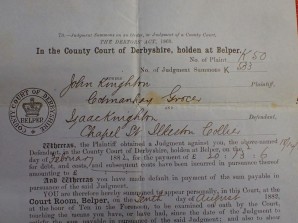 TO.—Judgment Summons on an order, or Judgment of a County Court.
THE DEBTORS ACT, 1869.
In the County Court of Derbyshire, holden at Belper.
No. of Plaint K 50
No. of Judgment Summons K 
BETWEEN
John Knighton Plaintiff,
Codnor Grocer
AND
Isaac Knighton Defendant,
Chapel St Ilkeston Collier
COUNTY COURT OF DERBYSHIRE
BELPER
Whereas, the Plaintiff obtained a Judgment against you, the above-named
Defendant, in the County Court of Derbyshire, holden at Belper, on the
day of February 1882, for the payment of £ 20 : 13 : 6
for debt, and costs, and subsequent costs have been incurred in
thereof amounting to £
And Whereas you have made default in payment of the sum payable in
pursuance of the said Judgment.
YOU are therefore Summoned to appear personally, in this Court, at the
Court Room, Belper, on the day of August 1882,
at the hour of Ten in the Forenoon, to be examined by the Court touching
the means you have, or have had, since the date of the Judgment to
the sum payable in pursuance of the said Judgment; and also to